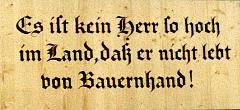 Es ist kein Herr so hoch
im Land, daß er nicht lebt
von Bauernhand!